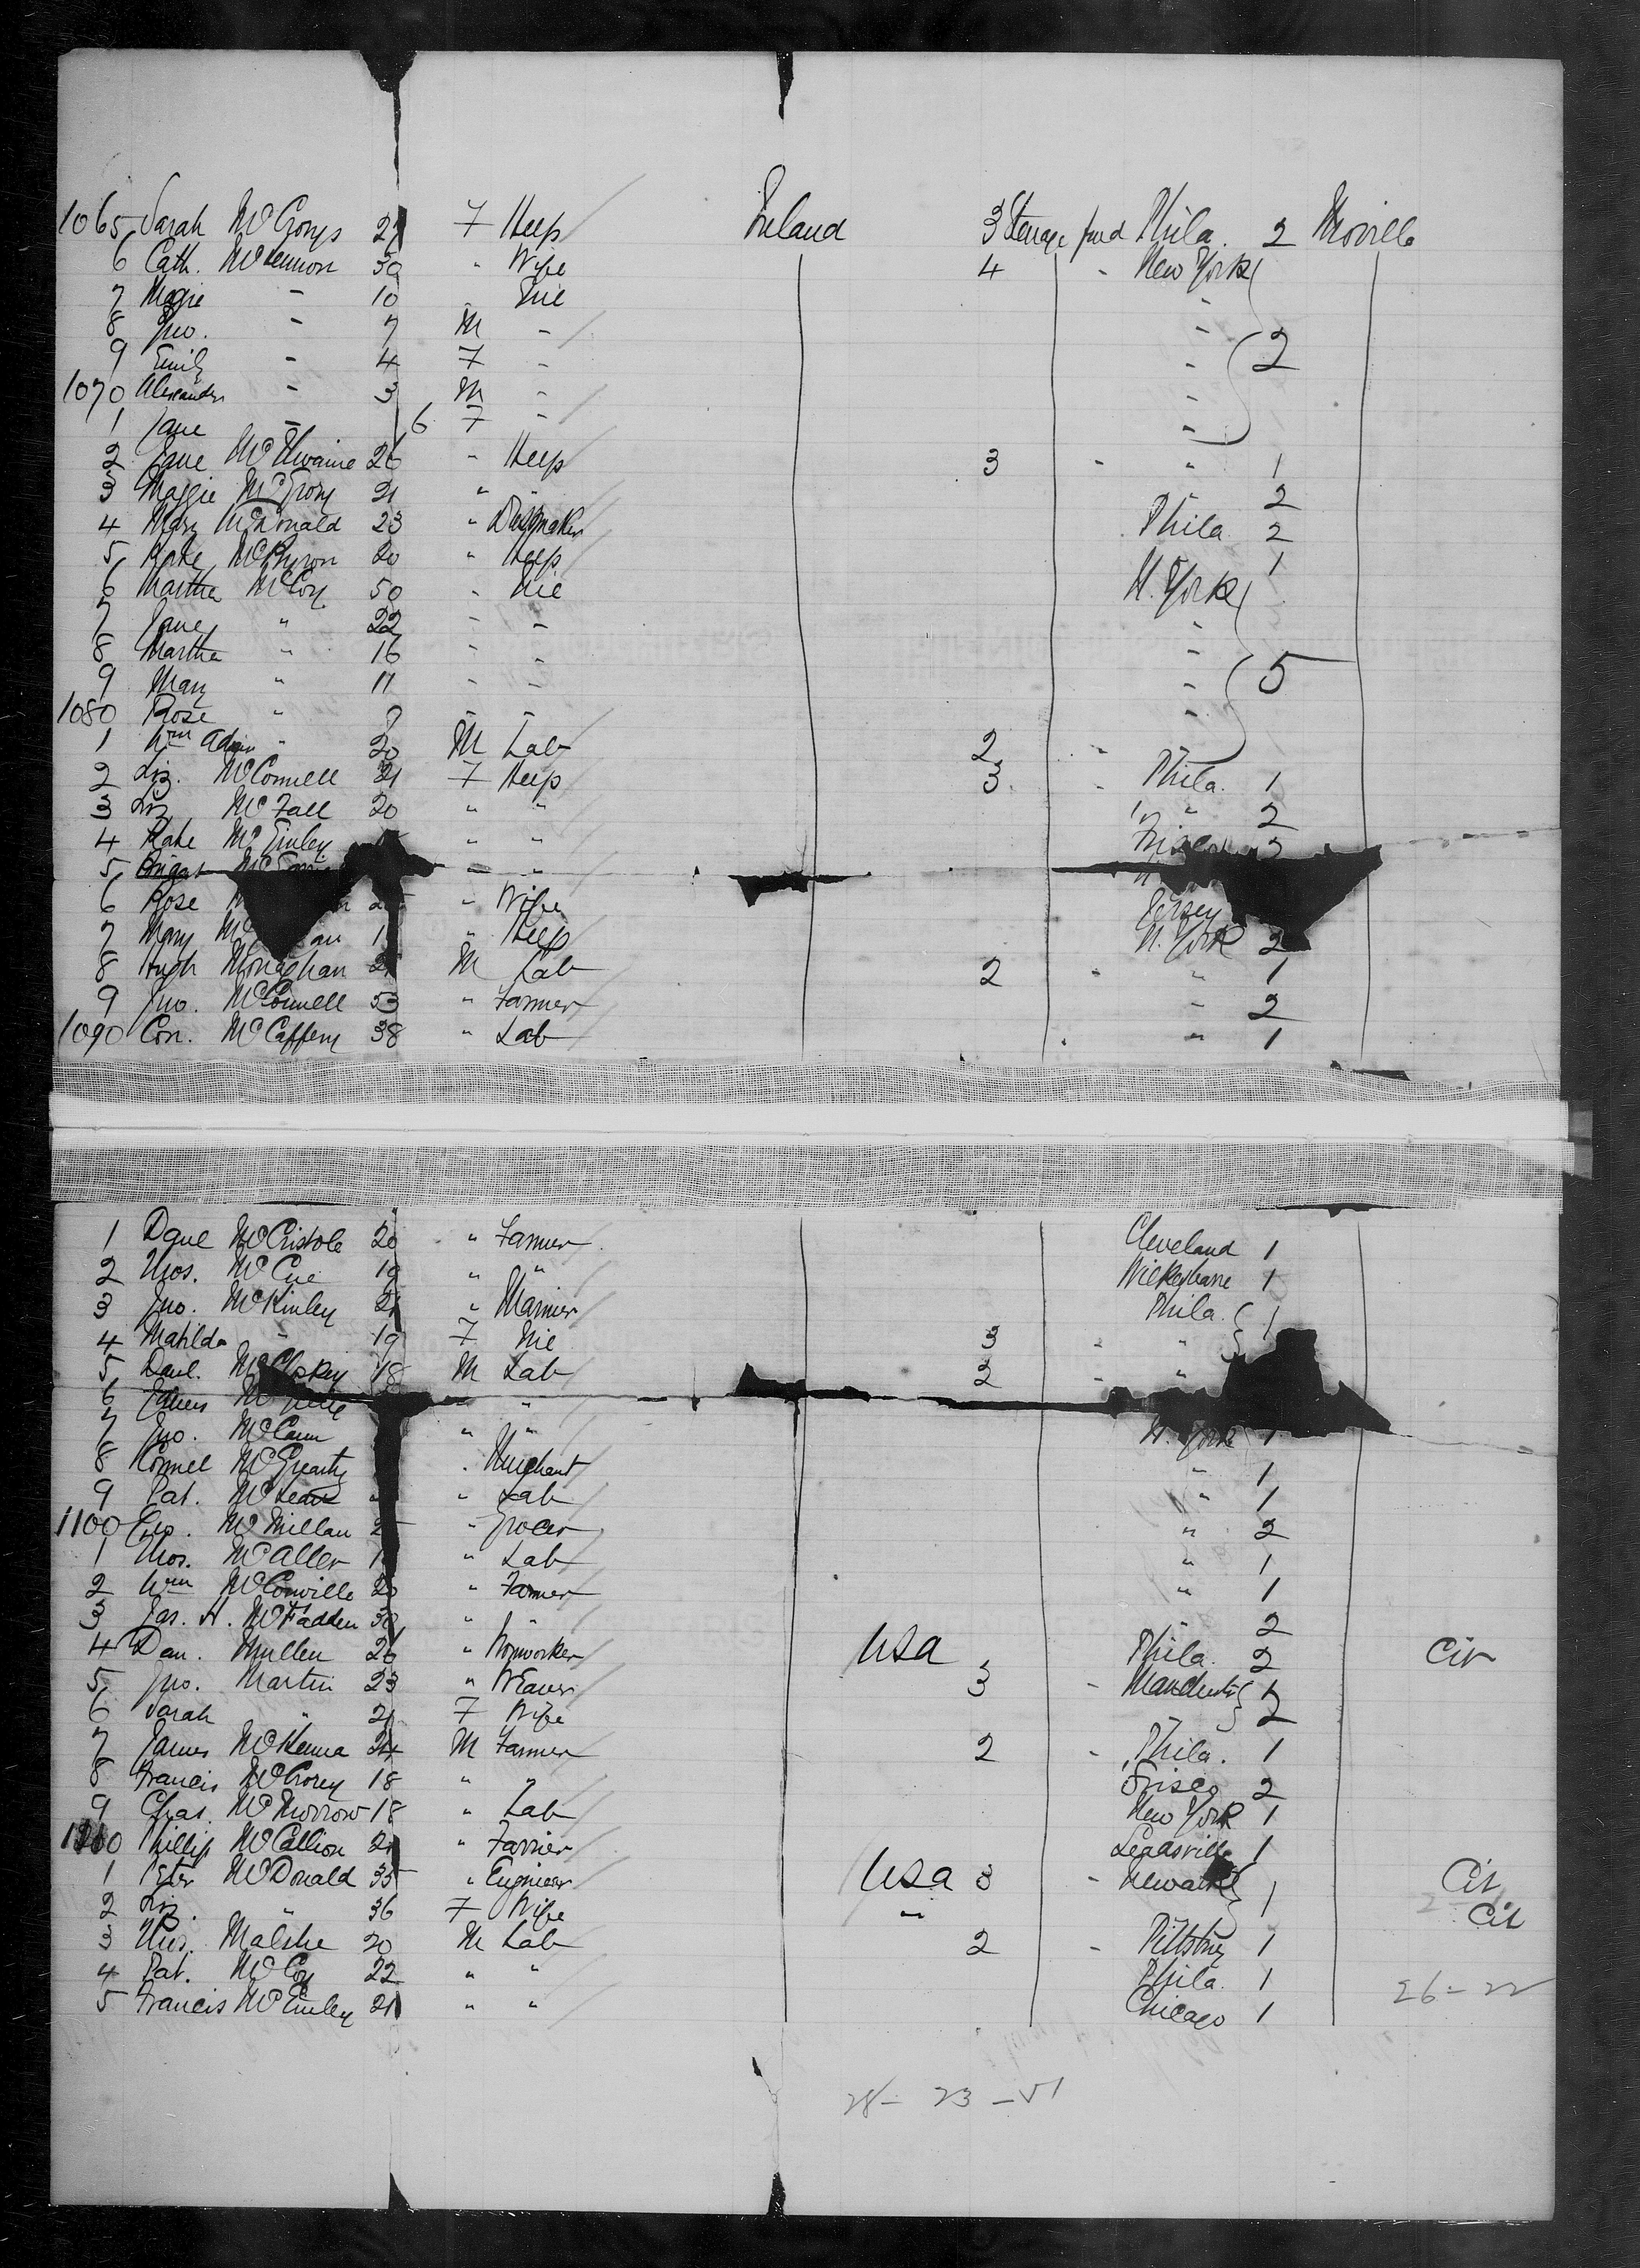 1065 Sarah McCrorys 27 F Keep Ireland 3 Steerage fwd Phila. 2 Moville
6 Cath. McLennon 30 " Wife 4 " New York
7 Magie " 10 " Nil "
8 Jno. " 7 M " "
9 Emily " 4 F " " 2
1070 Alexander " 3 M " "
1 Jane " 6 F " "
2 Jane McElwaine 26 " Keep 3 " " 1
3 Maggie McGrory 21 " " 2
4 Mary McDonald 23 " Dressmaker Phila. 2
5 Kate McByron 20 " Keep 1
6 Martha McCoy 50 " Nil N. York
7 Jane " 22 " " "
8 Martha " 16 " " "
9 Mary " 11 " " " 5
1080 Rose " " " "
1 Wm Adam " 30 M Lab 2 "
2 Liz. McConnell 21 F Keep 3 " Phila. 1
3 Liz McFall 20 " " " " 2
4 Kate McGinley " " Frisco 2
5 " "
6 Rose " Wife Jersey
7 Mary " Keep N. York 2
8 Hugh Monaghan M Lab 2 " " 1
9 Jno. McConnell 53 " Farmer " 2
1090 Con. McCaffery 38 " Lab " 1
1 Danl McCristole 20 " Farmer Cleveland 1
2 Thos. McCue 19 " " Wilkesbarre 1
3 Jno. McKinley 21 " Mariner Phila. 1
4 Matilda " 19 F Nil 3 " "
5 Danl. McCloskey 18 M Lab 2 " "
6 James "
7 Jno. McCann " " N. York 1
8 Connel McGrearty " Merchant " 1
9 Pat. McLean " Lab " 1
1100 Geo. McMillan " Grocer " 2
1 Thos. McAller " Lab " 1
2 Wm McConville 20 " Farmer " 1
3 Jas. H. McFadden 30 " " 2
4 Dan. Mullen 26 " Ironworker USA Phila. 2 Cit
5 Jno. Martin 23 " Weaver 3 " Manchester
6 Sarah " 21 F Wife 2
7 James McKenna 24 M Farmer 2 " Phila. 1
8 Francis McCrorey 18 " " Frisco 2
9 Chas. McMorrow 18 " Lab New York 1
1110 Phillip McCallion 21 " Farrier Leadsville 1
1 Peter McDonald 35 " Engineer USA 3 " Newark Cit
2 Liz. " 36 F Wife " 1 Cit
3 Thos. Malshe 20 M Lab 2 " Pittsburg 1
4 Pat. McCoy 22 " " Phila. 1
5 Francis McGinley 21 " " Chicago 1
26 - 22
28 - 23 - 51